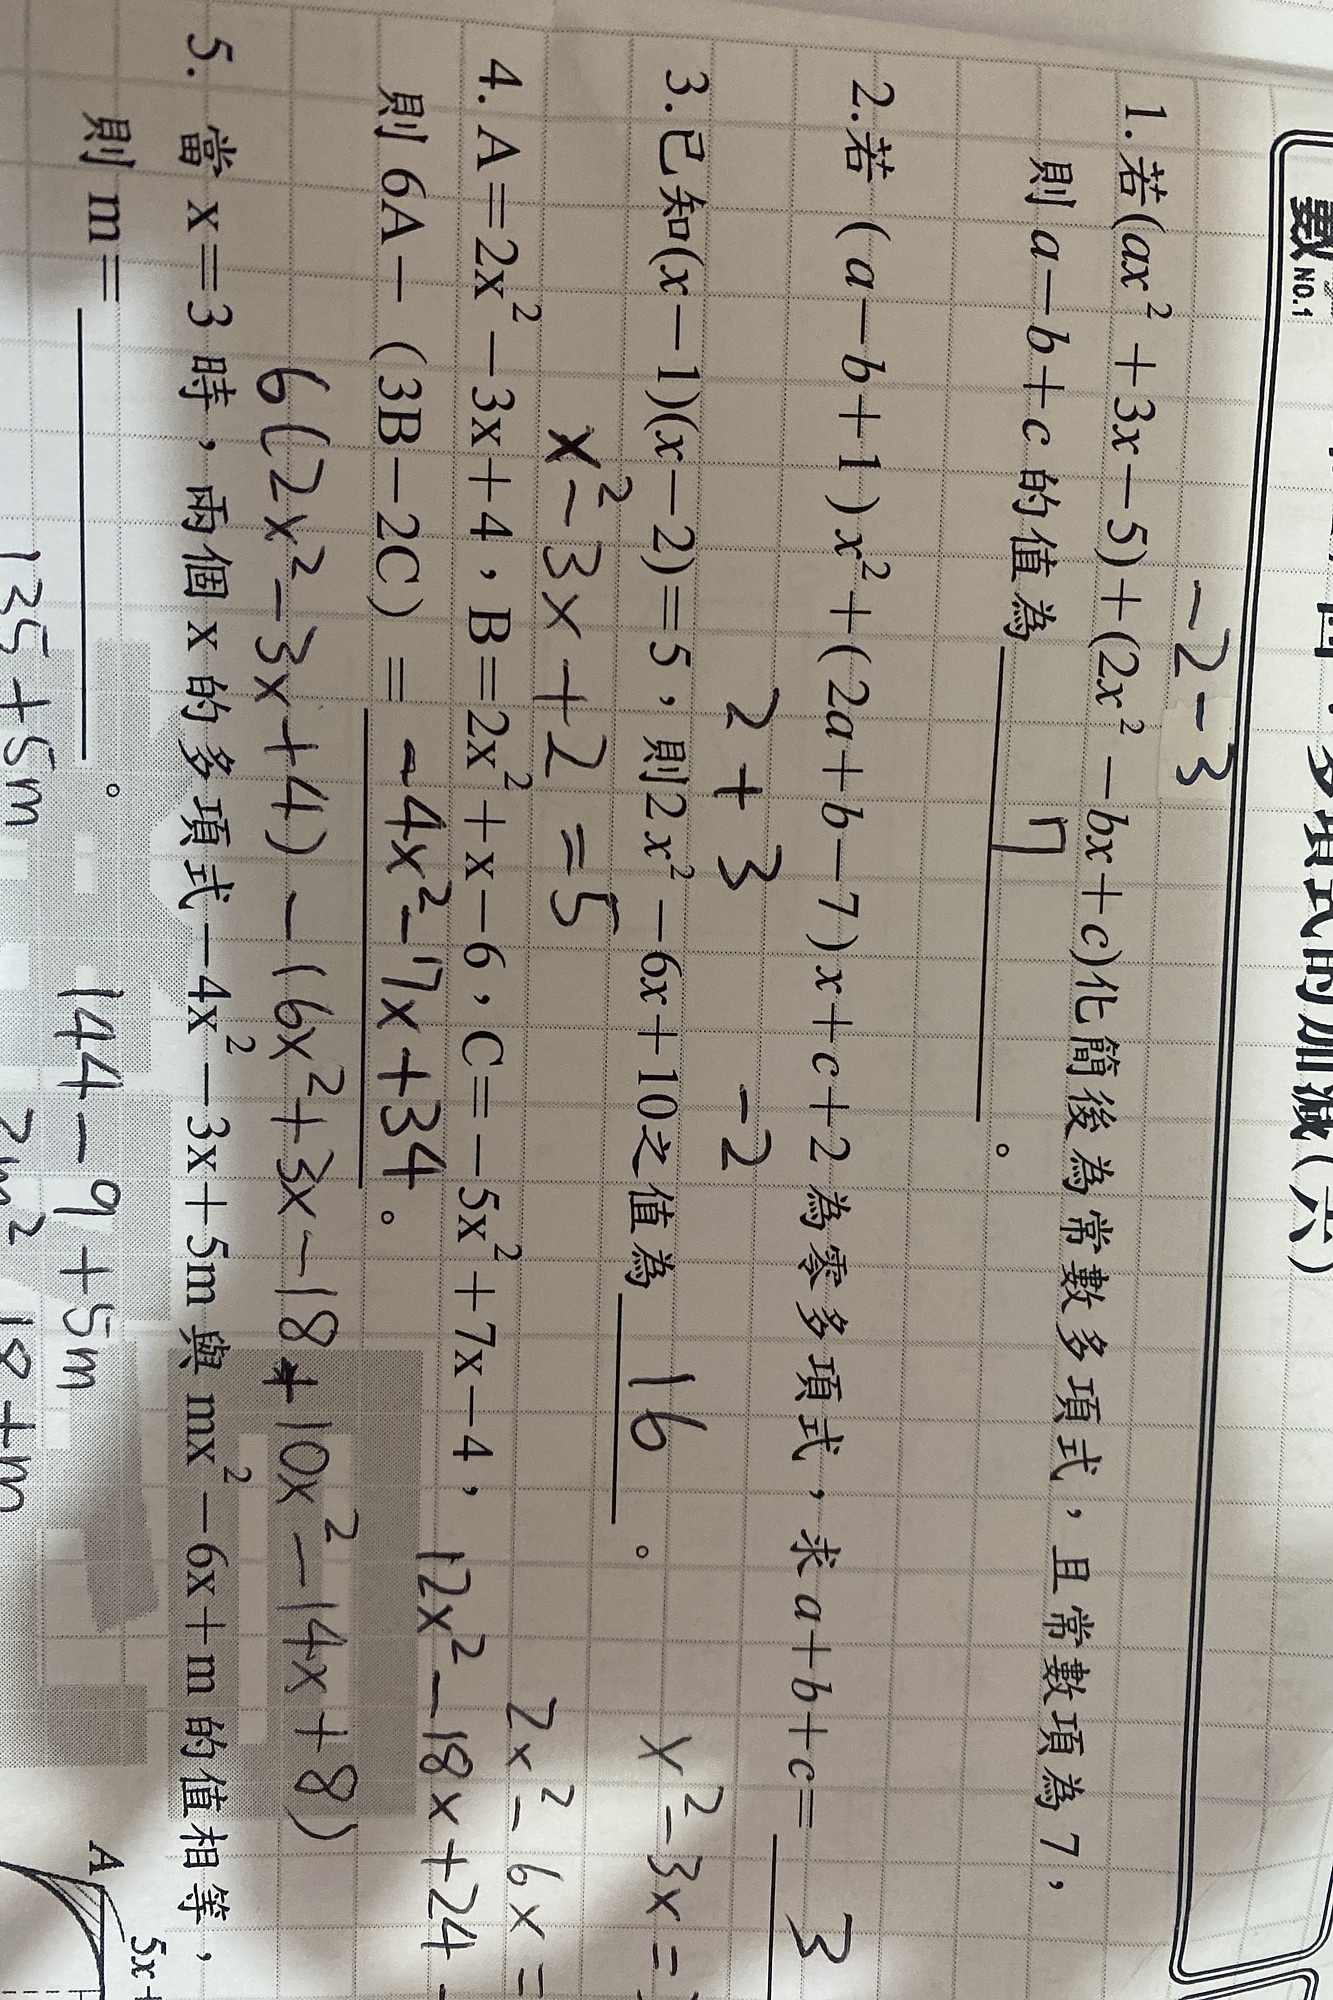 數
NO.1
多項式的加減(六)
-2-3
1.若(ax²+3x-5)+(2x²-bx+c)化簡後為常數多項式,且常數項為7,
則a-b+c的值為 7 。
2.若(a-b+1)x²+(2a+b-7)x+c+2為零多項式,求a+b+c= 3
2+3 -2
3.已知(x-1)(x-2)=5,則2x²-6x+10之值為 16 。
x²-3x=
x²-3x+2=5
2x²-6x=
4.A=2x²-3x+4,B=2x²+x-6,C=-5x²+7x-4,
12x²-18x+24-
則6A-(3B-2C)= -4x²-7x+34 。
6(2x²-3x+4)-(6x²+3x-18+10x²-14x+8)
5.當x=3時,兩個x的多項式-4x²-3x+5m與mx²-6x+m的值相等,
則m= 。
144-9+5m
135+5m
18+m
A
5x+